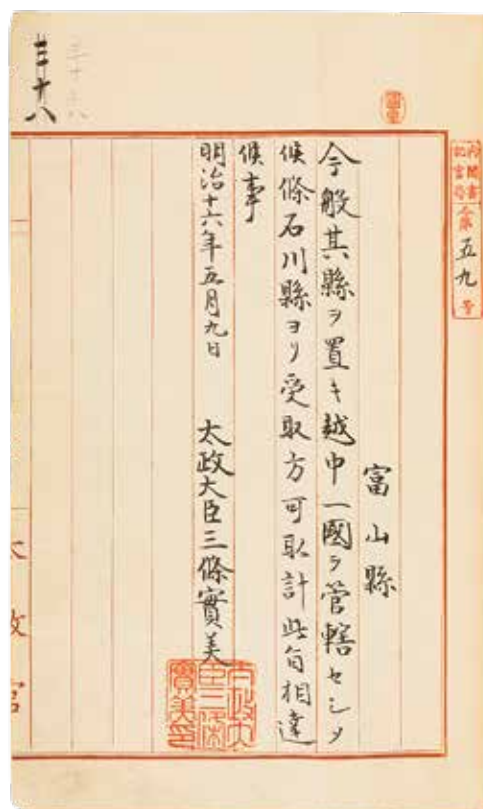 内閣書
記官局
第五九号
富山縣
今般其縣ヲ置キ越中一國ヲ管轄セシメ
候條石川縣ヨリ受取方可取計此旨相達
候事
明治十六年五月九日 太政大臣三條實美
太政大
臣三條
實美印
三十八
三十八
太政官